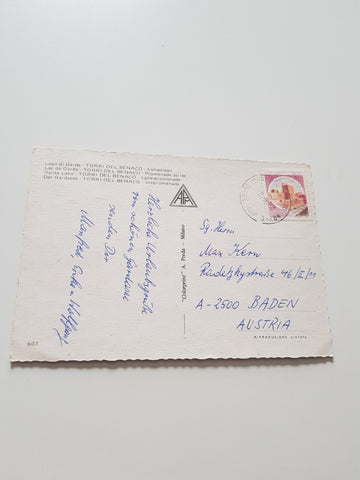 Lago di Garda - TORRI DEL BENACO - Lungolago
Lac de Garda - TORRI DEL BENACO - Promenade du lac
Garda Lake - TORRI DEL BENACO - Lake-promenade
Der Gardasee - TORRI DEL BENACO - Seepromenade
Herzliche Urlaubsgrüße
vom schönen Gardasee
senden Dir
Manfred,
607
"Chierpiù" A. Preda - Milano
Sg. Herrn
Max Kern
Radetzkystraße 46/II/11
A-2500 BADEN
AUSTRIA
RIPRODUZIONE VIETATA